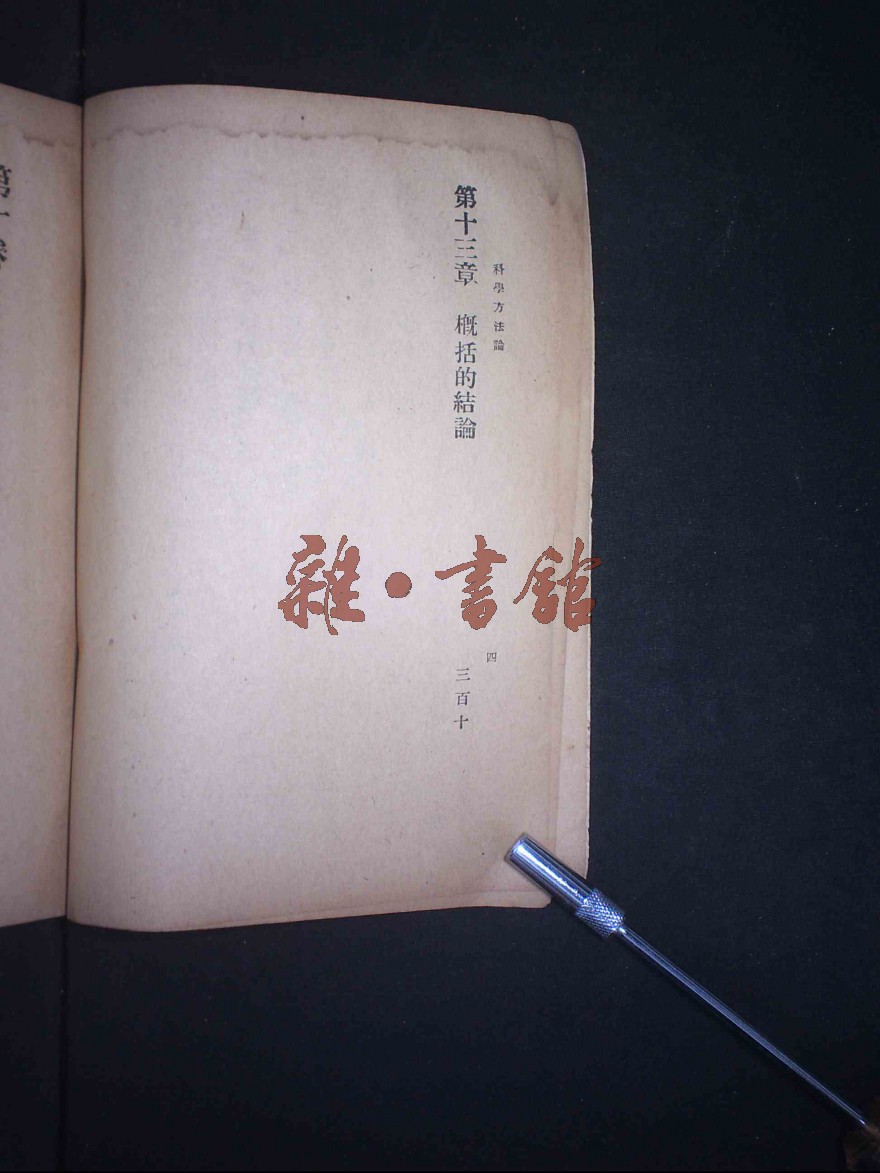 科學方法論
四
第十三章　概括的結論
三百十
第一
雜·書館